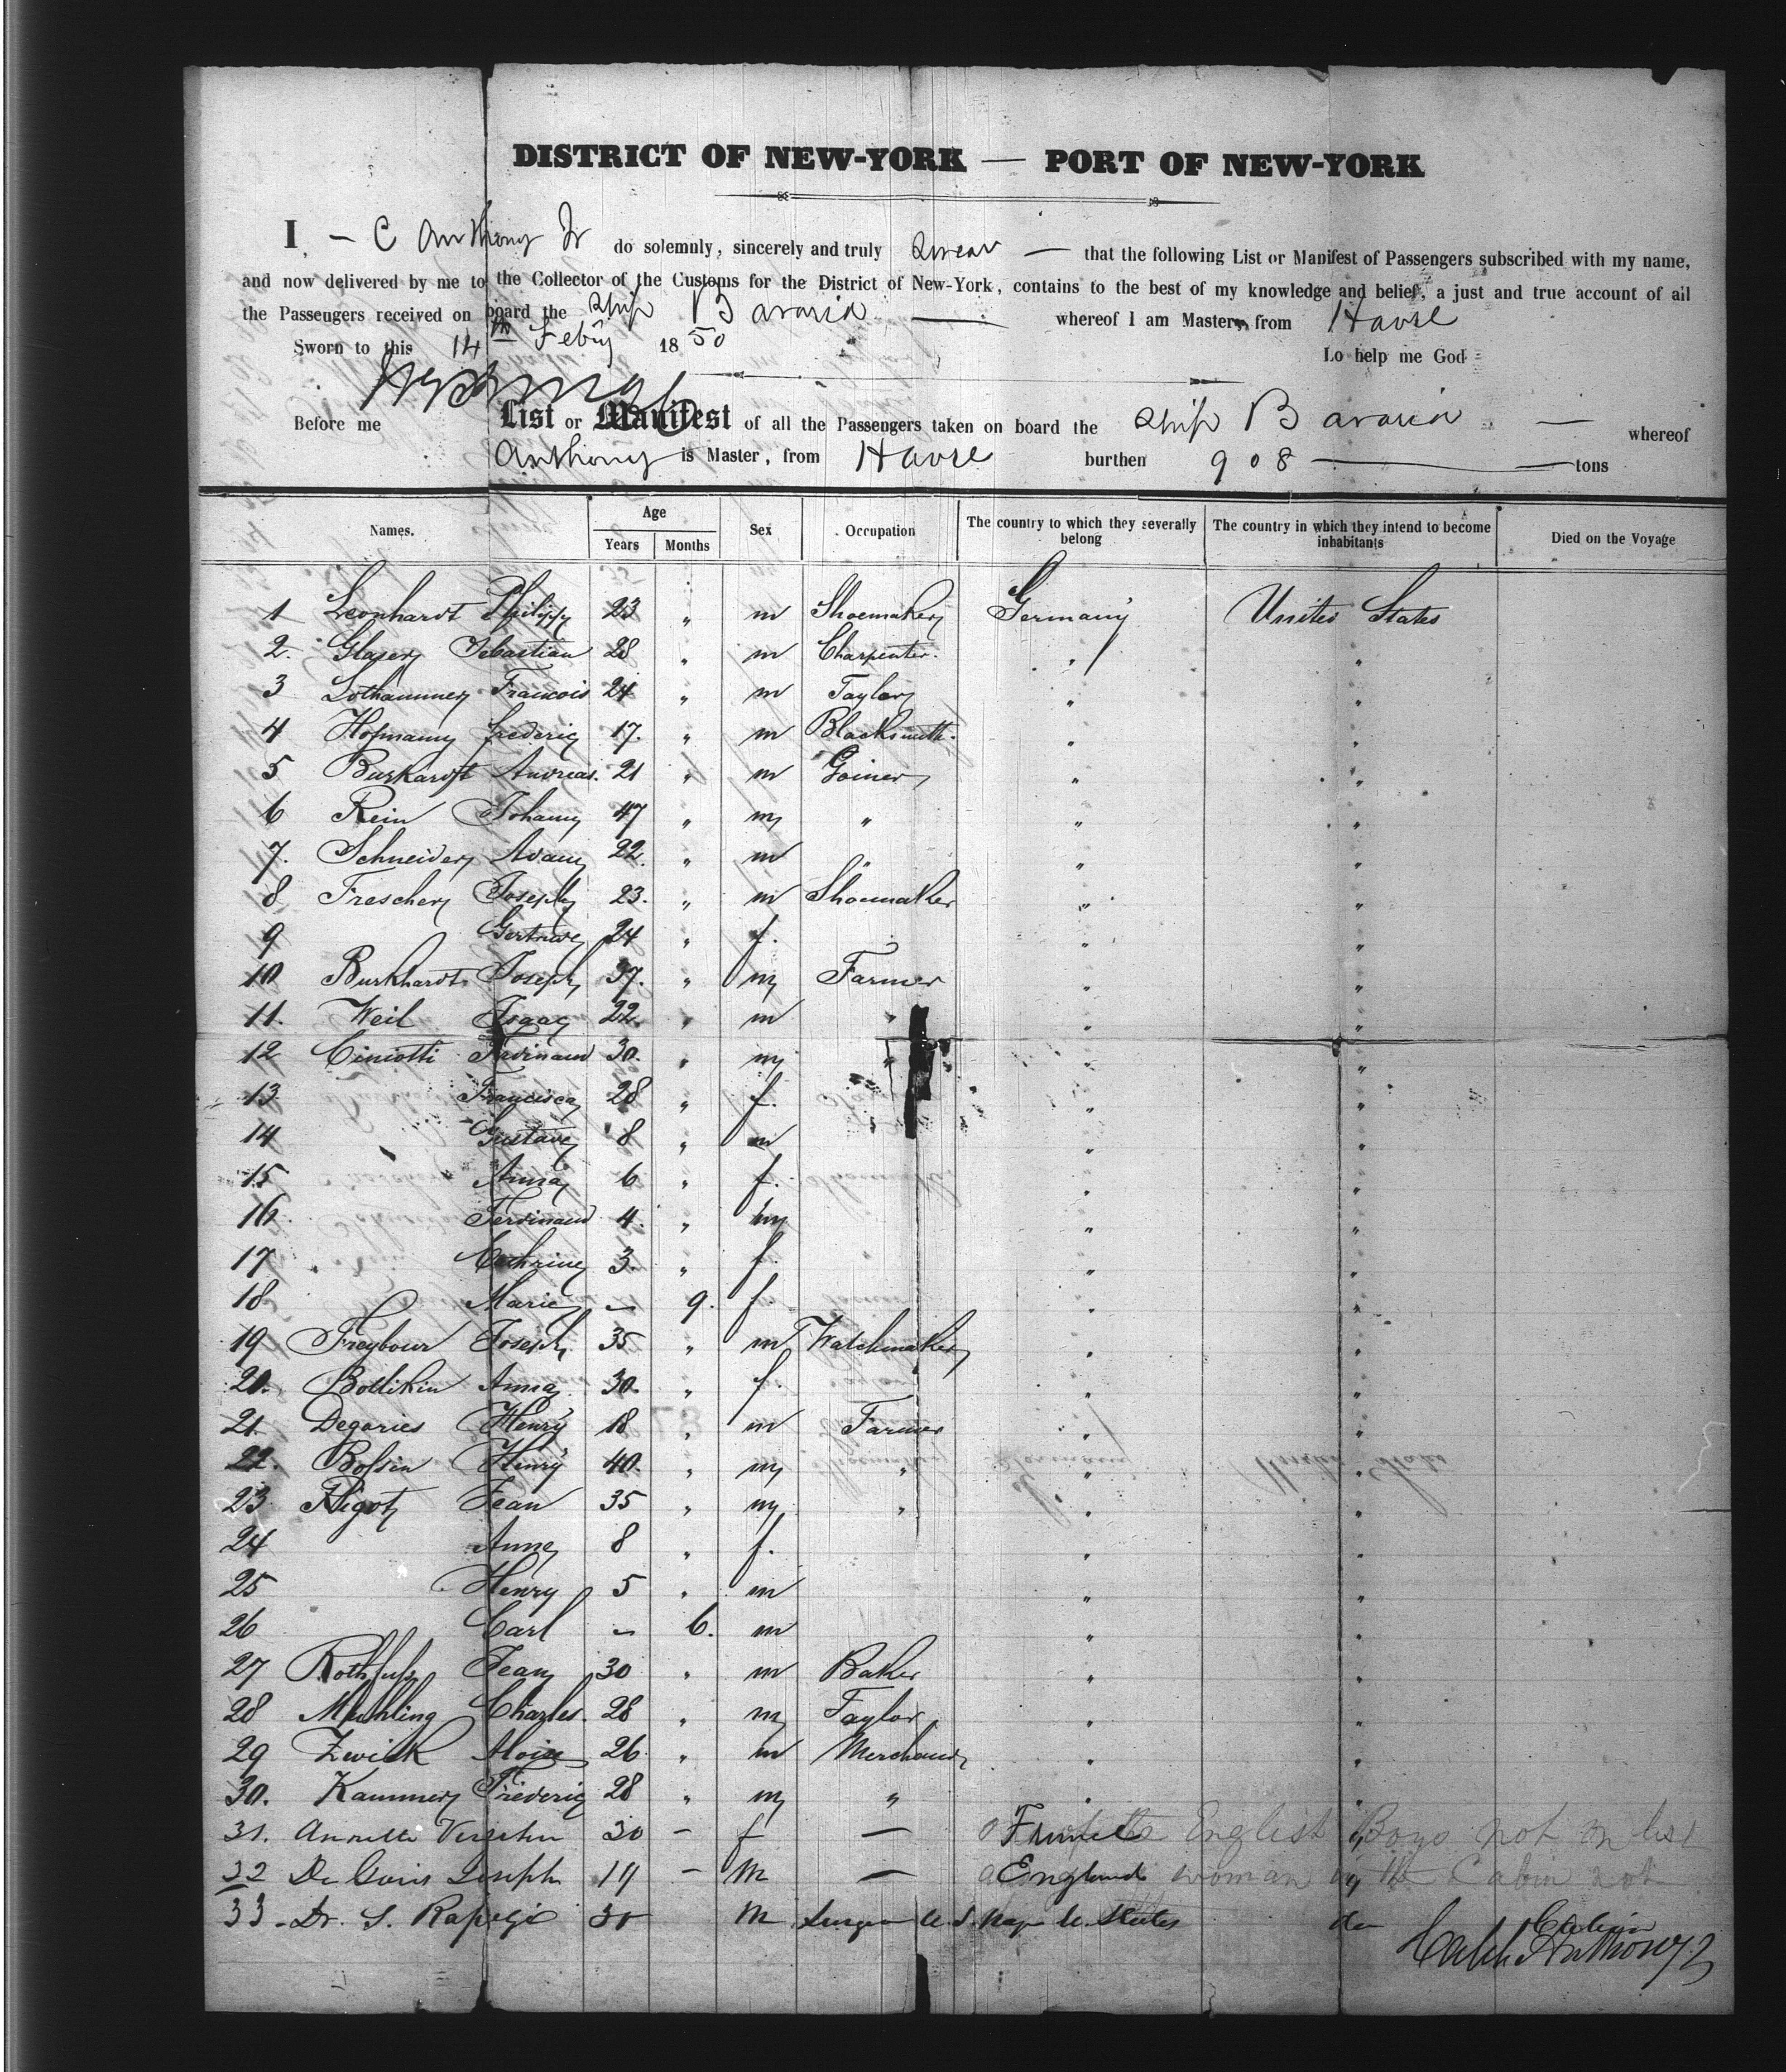 DISTRICT OF NEW-YORK — PORT OF NEW-YORK
I, — C Anthony Jr do solemnly, sincerely and truly swear — that the following List or Manifest of Passengers subscribed with my name,
and now delivered by me to the Collector of the Customs for the District of New-York, contains to the best of my knowledge and belief, a just and true account of all
the Passengers received on board the Ship Bavaria — whereof I am Master, from Havre
Sworn to this 14th Feby 1850 So help me God
Before me
List or Manifest of all the Passengers taken on board the Ship Bavaria — whereof
Anthony is Master, from Havre burthen 908 — tons
Names. Age Years Months Sex Occupation The country to which they severally belong The country in which they intend to become inhabitants Died on the Voyage
1 Leonhardt Philipp 23 " m Shoemaker Germany United States
2. Glaser Sebastian 28 " m Charpenter. " "
3 Lothammer Francois 24 " m Taylor " "
4 Hofmann frederic 17. " m Blacksmith. " "
5 Burkardt Andreas. 21 " m Goiner " "
6 Rein Johann 47 " m " " "
7. Schneider Adam 22. " m " " "
8 Frescher Joseph 23. " m Shoemaker " "
9 Gertrude 24 " f. " "
10 Burkhardt Joseph 37. " m Farmer " "
11. Weil Isaac 22. " m " " "
12 Ciniotti Ferdinand 30. " m " " "
13 Francisca 28 " f. " "
14 Gustave 8 " m " "
15 Anna 6 " f. " "
16. Ferdinand 4. " m " "
17. Cathrine 3. " f. " "
18 Marie — 9. f. " "
19 Freybour Joseph 35 " m Watchmaker " "
20. Bollikin Anna 30. " f. " "
21. Degaries Henry 18 " m Farmer " "
22. Bossin Henry 40. " m " " "
23 Rigot Jean 35 " m " " "
24 Anne 8 " f. " "
25 Henry 5 " m " "
26 Carl — 6. m " "
27 Rothfuss Jean 30 " m Baker " "
28 Muhling Charles. 28 " m Taylor " "
29 Zwick Alois 26 " m Merchand " "
30. Kammer Frederic 28 " m " " "
31. Annette 30 — f — English Boys not on list
32 Joseph 19 — M — England woman in the Cabin not
33 - Dr. S. 30 M Surgeon U.S. U. States do Cabin
Caleb Anthony Jr